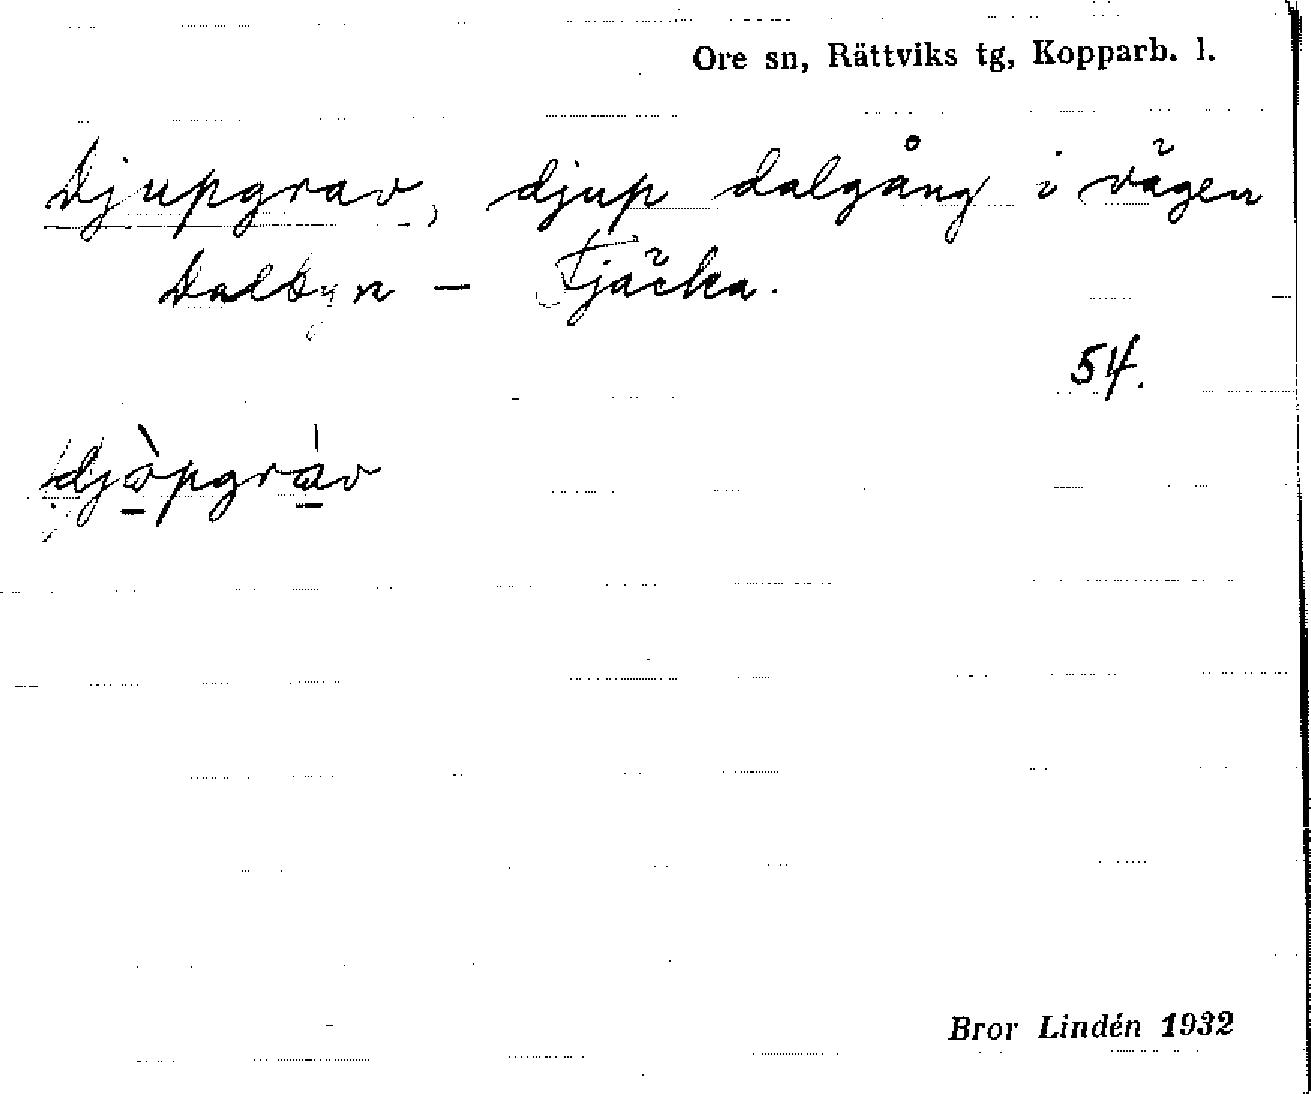 Ore sn, Rättviks tg, Kopparb. l.
Djupgrav, djup dalgång i vägen
Dalbyn – Tjäcka.
54.
djò̱pgra̱v
Bror Lindén 1932